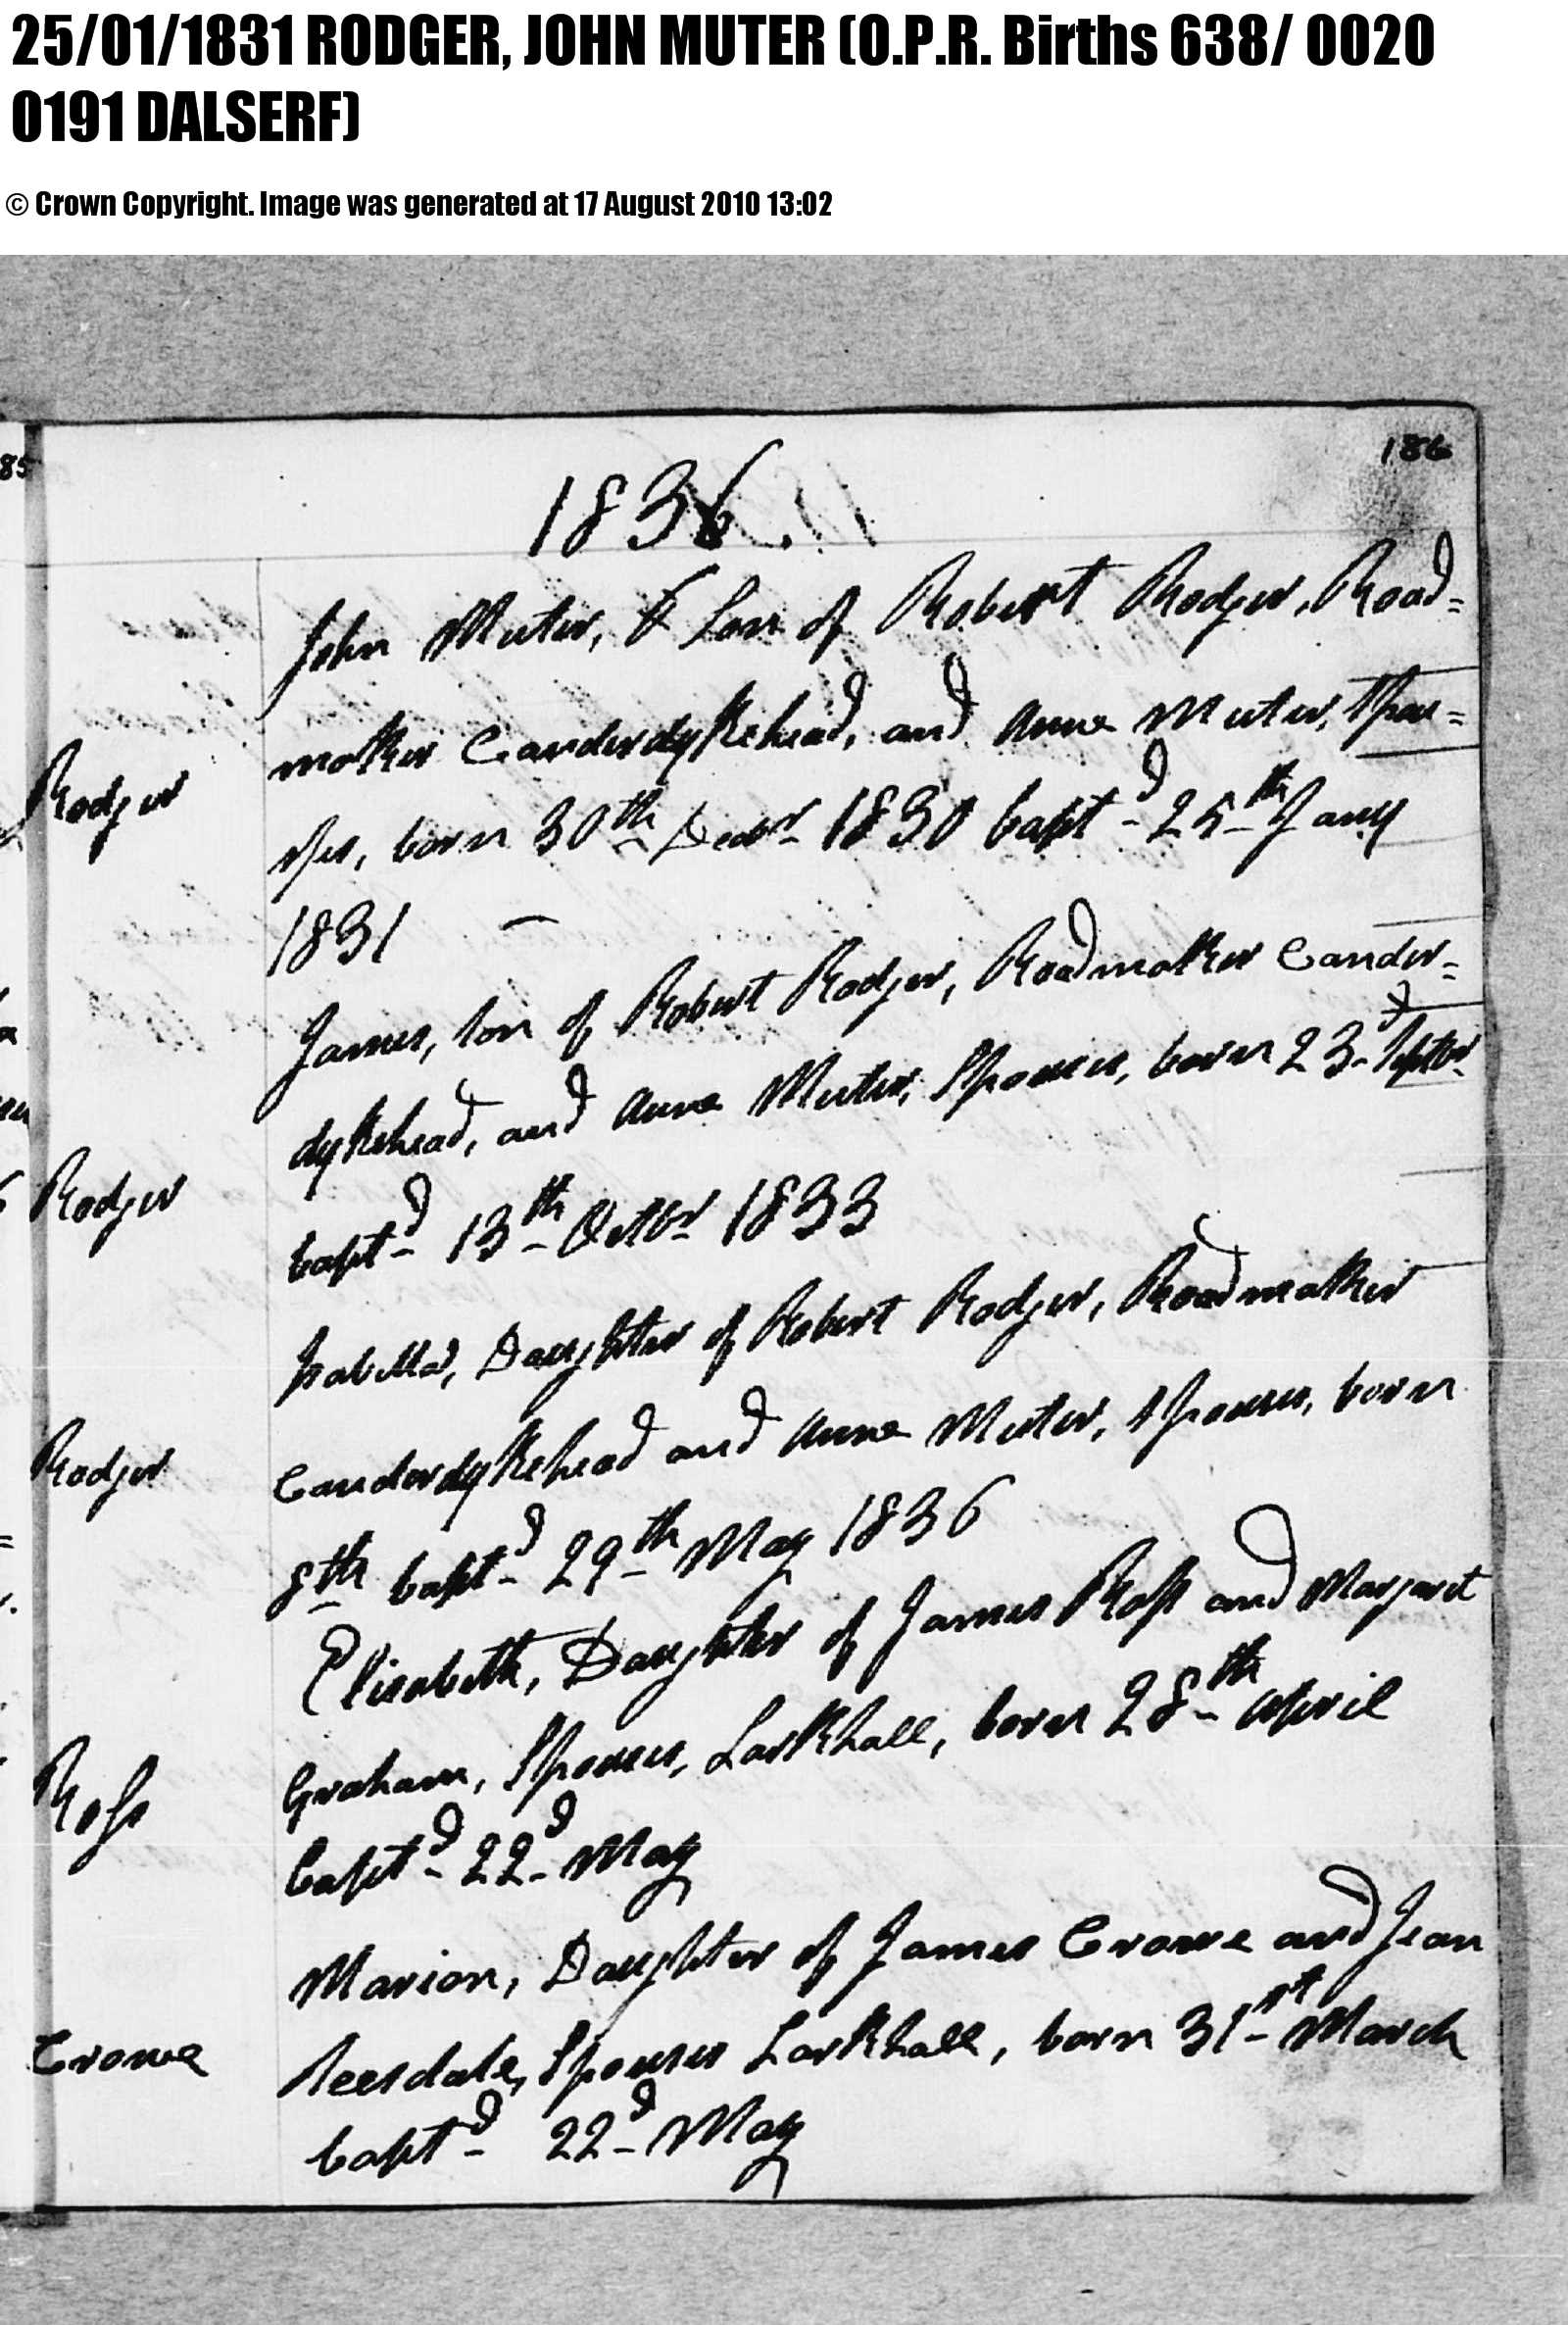 25/01/1831 RODGER, JOHN MUTER (O.P.R. Births 638/ 0020
0191 DALSERF)
© Crown Copyright. Image was generated at 17 August 2010 13:02
85
186
1836.
John Muter, Son of Robert Rodger, Road=
Rodger
maker Canderdykehead, and Anne Muter, Spou=
ses, born 30th Decbr 1830 bapt d 25th Jany
1831
James, Son of Robert Rodger, Roadmaker Cander=
Rodger
dykehead, and Anne Muter, Spouses, born 23d Septbr
baptd 13th Octbr 1833
Isabella, Daughter of Robert Rodger, Roadmaker
Rodger
Canderdykehead and Anne Muter, Spouses, born
8th baptd 29th May 1836
Elisabeth, Daughter of James Ross and Margaret
Ross
Graham, Spouses, Larkhall, born 28th April
baptd 22d May
Marion, Daughter of James Crowe and Jean
Crowe
Teesdale, Spouses Larkhall, born 31st March
baptd 22d May